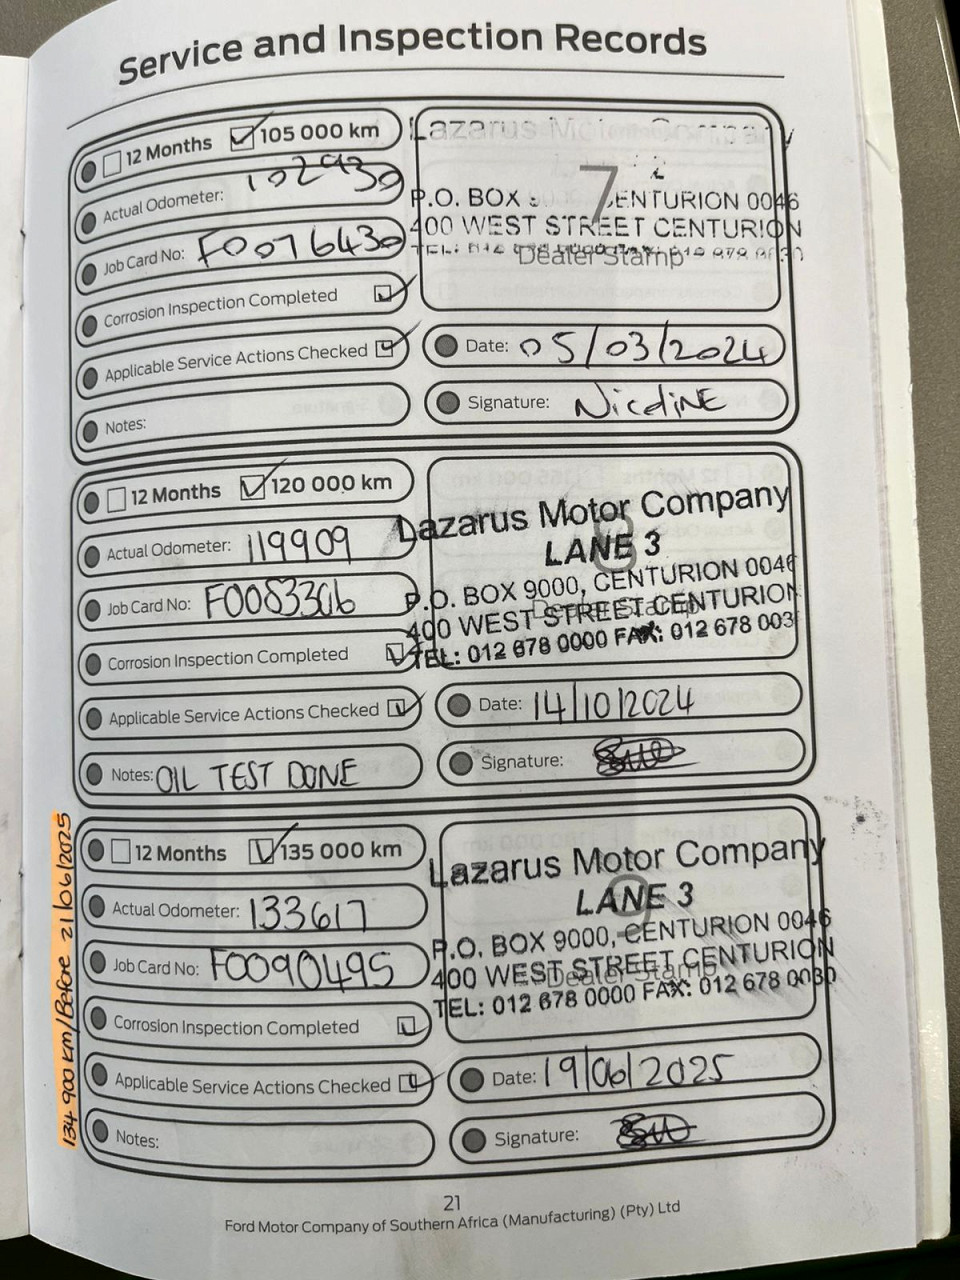 Service and Inspection Records
12 Months 105 000 km
Actual Odometer: 102930
Job Card No: F0076430
Corrosion Inspection Completed
Applicable Service Actions Checked
Notes:
Lazarus Motor Company
7
P.O. BOX CENTURION 0046
400 WEST STREET CENTURION
Dealer Stamp
Date: 05/03/2024
Signature: NicoliNE
12 Months 120 000 km
Actual Odometer: 119909
Job Card No: F0083306
Corrosion Inspection Completed
Applicable Service Actions Checked
Notes: OIL TEST DONE
Lazarus Motor Company
LANE 3
8
P.O. BOX 9000, CENTURION 0046
Dealer Stamp
400 WEST STREET CENTURION
TEL: 012 678 0000 FAX: 012 678 003
Date: 14/10/2024
Signature:
12 Months 135 000 km
Actual Odometer: 133617
Job Card No: F0090495
Corrosion Inspection Completed
Applicable Service Actions Checked
Notes:
Lazarus Motor Company
LANE 3
9
P.O. BOX 9000, CENTURION 0046
400 WEST STREET CENTURION
Dealer Stamp
TEL: 012 678 0000 FAX: 012 678 0030
Date: 19/06/2025
Signature:
134 900 km/Before 21/06/2025
21
Ford Motor Company of Southern Africa (Manufacturing) (Pty) Ltd